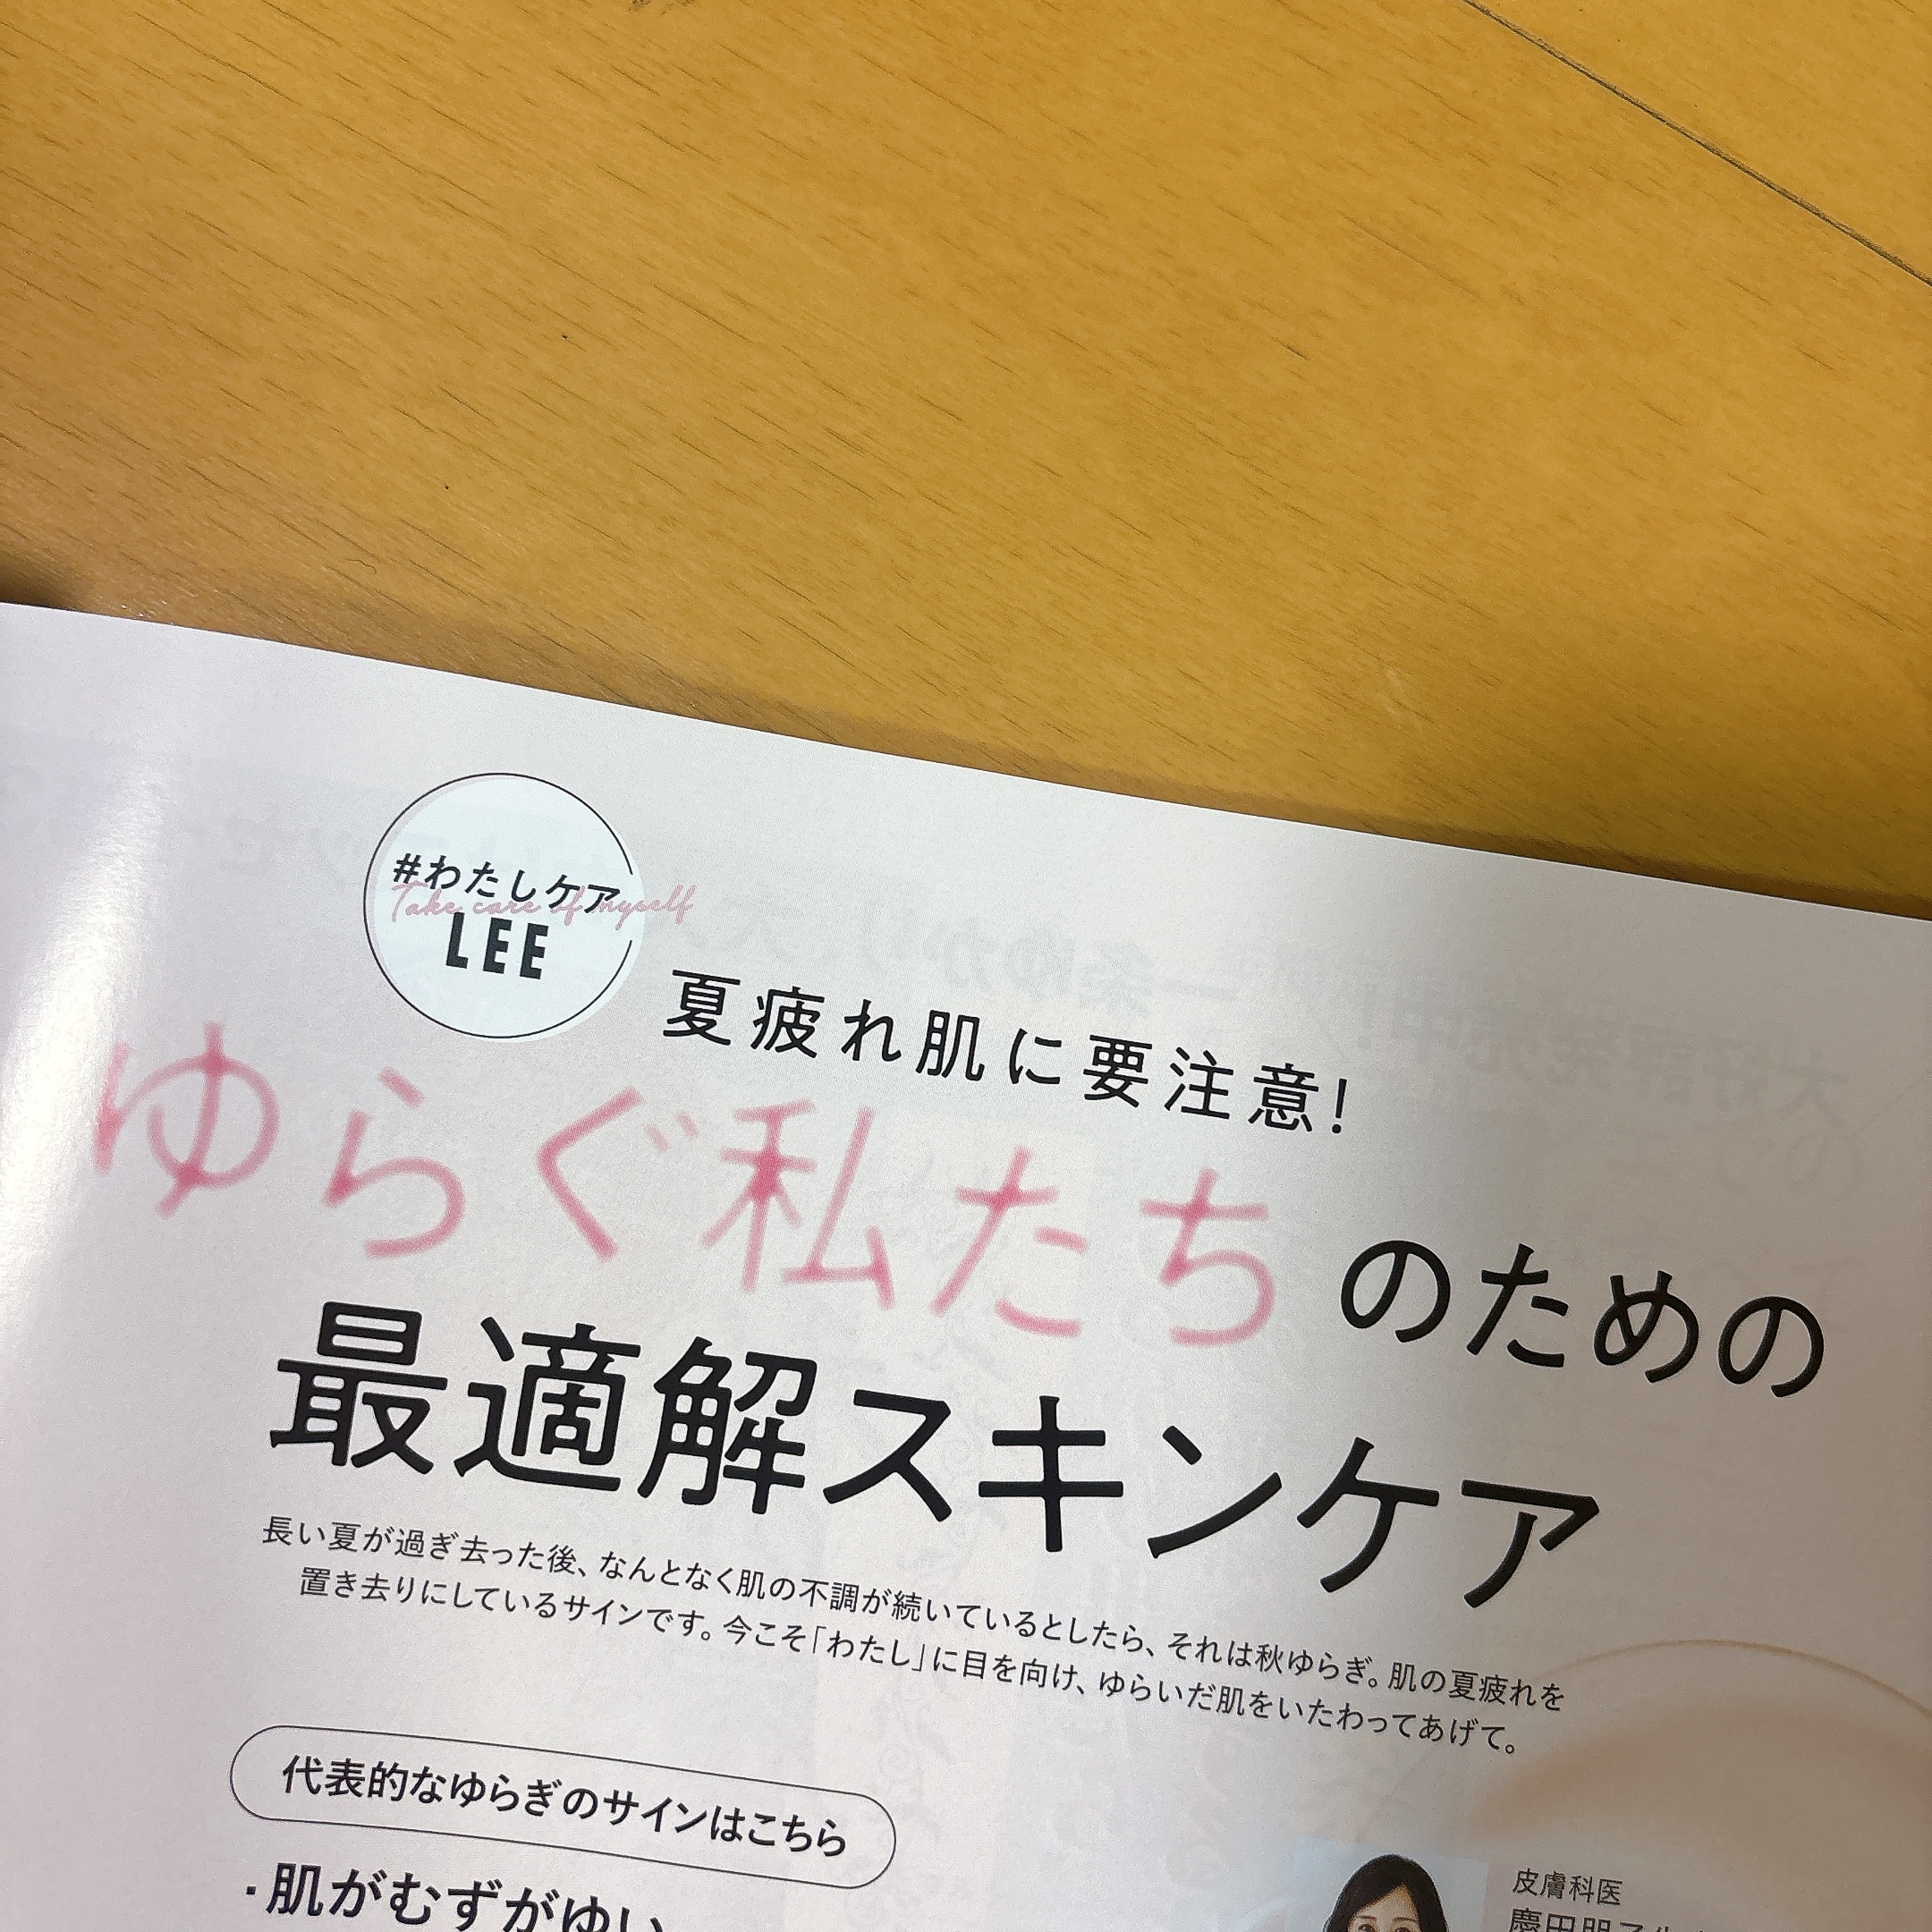 #わたしケア
Take care of myself
LEE
夏疲れ肌に要注意!
ゆらぐ私たちのための
最適解スキンケア
長い夏が過ぎ去った後、なんとなく肌の不調が続いているとしたら、それは秋ゆらぎ。肌の夏疲れを
置き去りにしているサインです。今こそ「わたし」に目を向け、ゆらいだ肌をいたわってあげて。
代表的なゆらぎのサインはこちら
・肌がむずがゆい
皮膚科医
慶田朋子